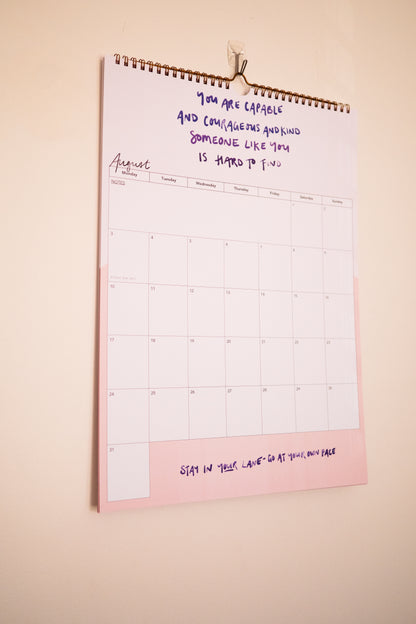 YOU ARE CAPABLE
AND COURAGEOUS AND KIND
SOMEONE LIKE YOU
IS HARD TO FIND
August
Monday Tuesday Wednesday Thursday Friday Saturday Sunday
NOTES 1 2
3 4 5 6 7 8 9
10 11 12 13 14 15 16
17 18 19 20 21 22 23
24 25 26 27 28 29 30
31
STAY IN YOUR LANE - GO AT YOUR OWN PACE